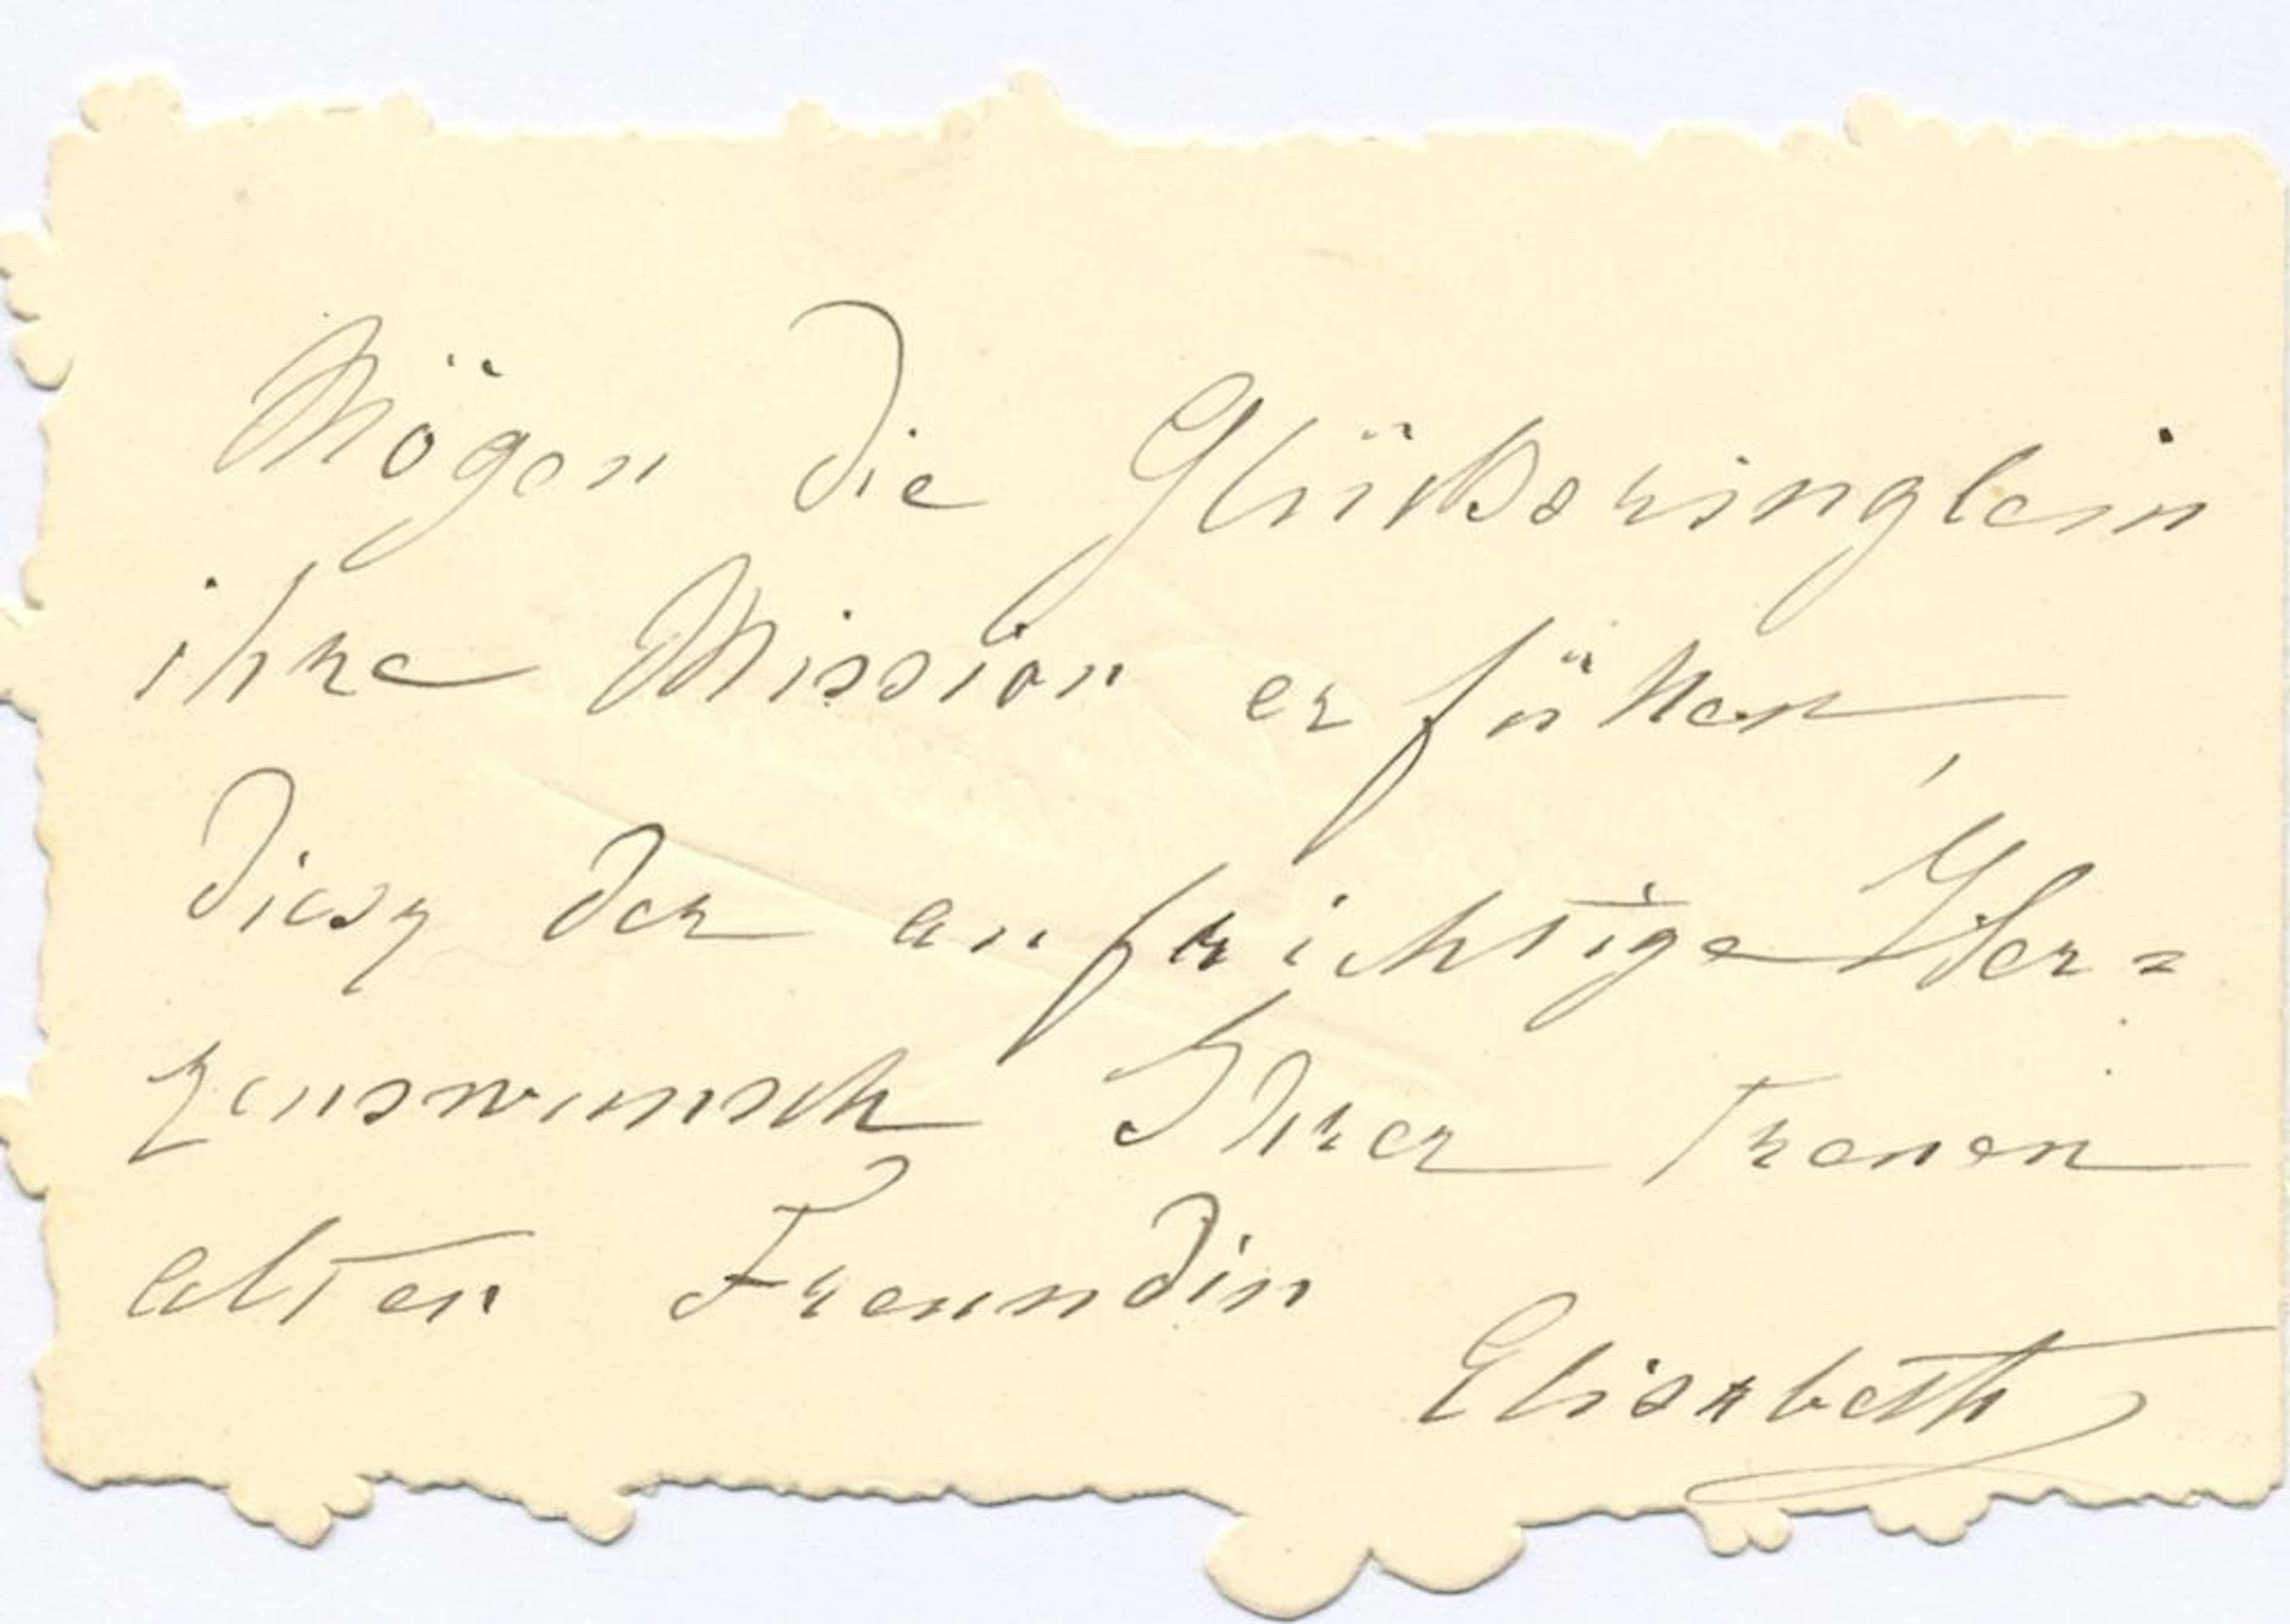 Mögen die Glücksringlein
ihre Mission erfüllen,
diesz der aufrichtige Her=
zenswunsch Ihrer treuen
alten Freundin
Elisabeth